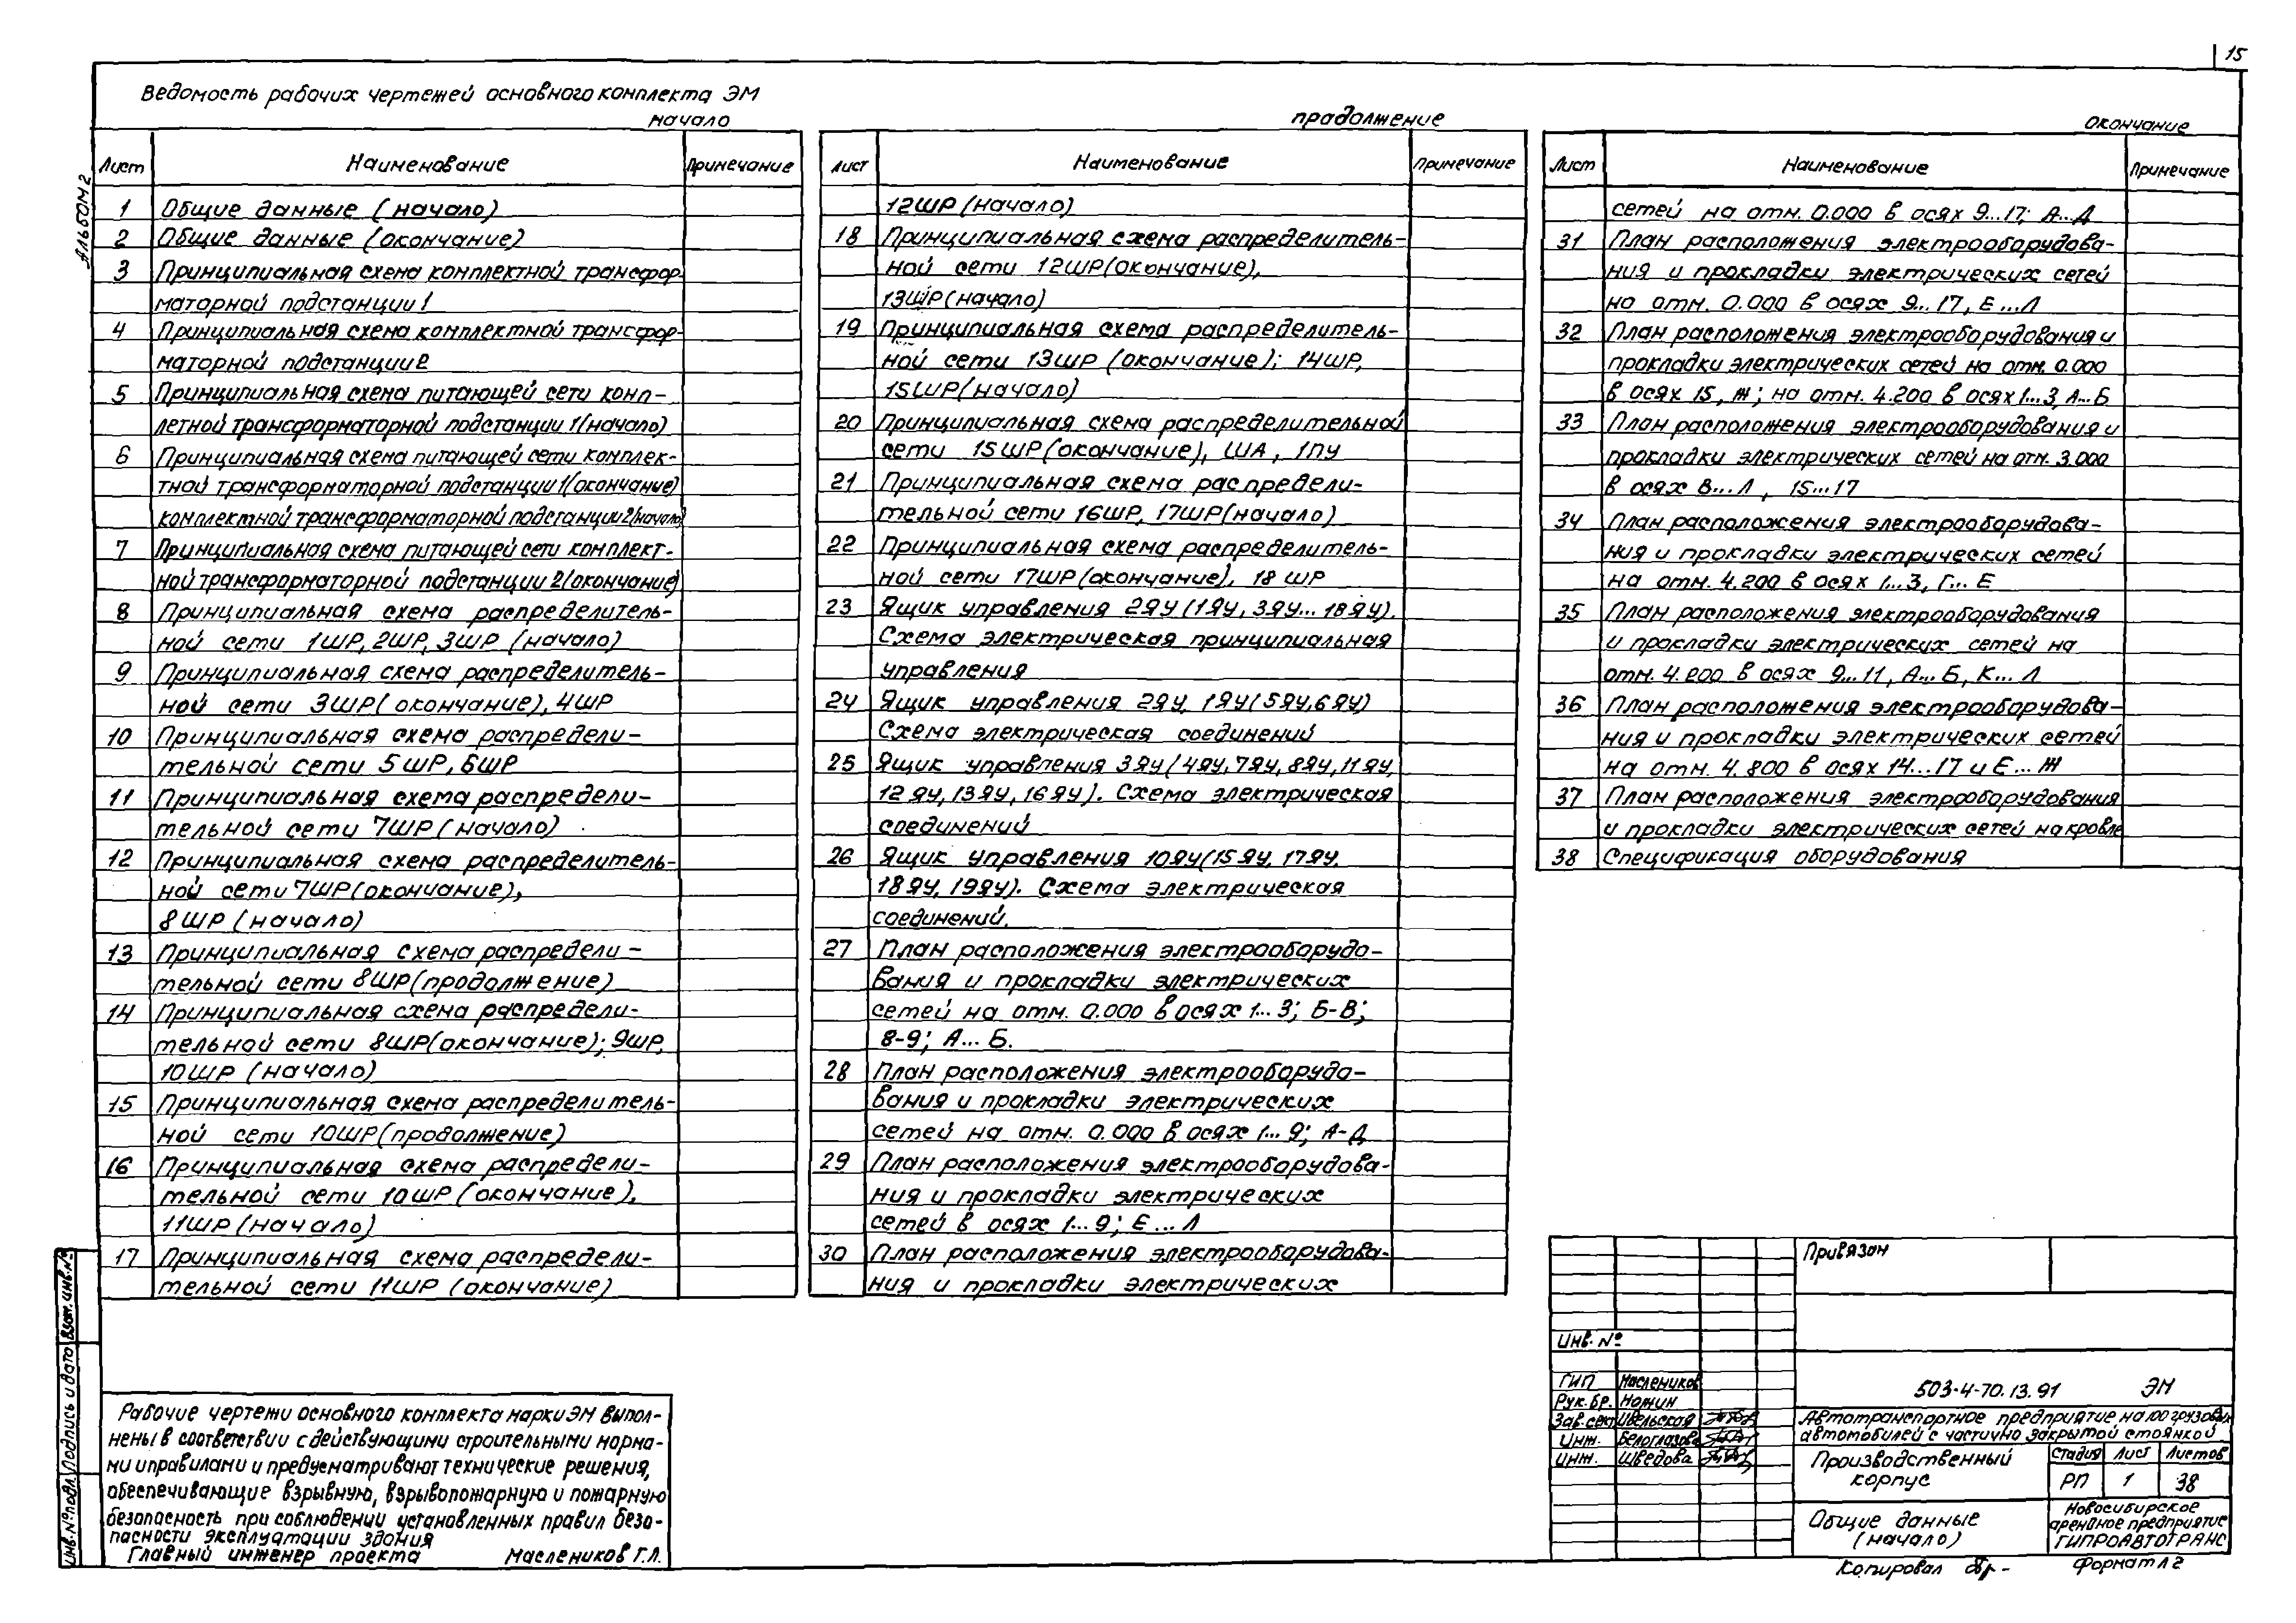 15
Альбом 2
Ведомость рабочих чертежей основного комплекта ЭМ
начало
Лист Наименование Примечание
1 Общие данные (начало)
2 Общие данные (окончание)
3 Принципиальная схема комплектной трансфор-
маторной подстанции 1
4 Принципиальная схема комплектной трансфор-
маторной подстанции 2
5 Принципиальная схема питающей сети комп-
летной трансформаторной подстанции 1 (начало)
6 Принципиальная схема питающей сети комплек-
тной трансформаторной подстанции 1 (окончание)
комплектной трансформаторной подстанции 2 (начало)
7 Принципиальная схема питающей сети комплект-
ной трансформаторной подстанции 2 (окончание)
8 Принципиальная схема распределитель-
ной сети 1ШР, 2ШР, 3ШР (начало)
9 Принципиальная схема распределитель-
ной сети 3ШР (окончание), 4ШР
10 Принципиальная схема распредели-
тельной сети 5ШР, 6ШР
11 Принципиальная схема распредели-
тельной сети 7ШР (начало)
12 Принципиальная схема распределитель-
ной сети 7ШР (окончание),
8ШР (начало)
13 Принципиальная схема распредели-
тельной сети 8ШР (продолжение)
14 Принципиальная схема распредели-
тельной сети 8ШР (окончание); 9ШР,
10ШР (начало)
15 Принципиальная схема распределитель-
ной сети 10ШР (продолжение)
16 Принципиальная схема распредели-
тельной сети 10ШР (окончание),
11ШР (начало)
17 Принципиальная схема распредели-
тельной сети 11ШР (окончание)
продолжение
Лист Наименование Примечание
12ШР (начало)
18 Принципиальная схема распределитель-
ной сети 12ШР (окончание),
13ШР (начало)
19 Принципиальная схема распределитель-
ной сети 13ШР (окончание); 14ШР,
15ШР (начало)
20 Принципиальная схема распределительной
сети 15ШР (окончание), ША, 1ПУ
21 Принципиальная схема распредели-
тельной сети 16ШР, 17ШР (начало)
22 Принципиальная схема распределитель-
ной сети 17ШР (окончание), 18ШР
23 Ящик управления 2ЯУ (1ЯУ, 3ЯУ... 18ЯУ).
Схема электрическая принципиальная
управления
24 Ящик управления 2ЯУ, 1ЯУ (5ЯУ, 6ЯУ)
Схема электрическая соединений
25 Ящик управления 3ЯУ (4ЯУ, 7ЯУ, 8ЯУ, 11ЯУ,
12ЯУ, 13ЯУ, 16ЯУ). Схема электрическая
соединений
26 Ящик управления 10ЯУ (15ЯУ, 17ЯУ,
18ЯУ, 19ЯУ). Схема электрическая
соединений.
27 План расположения электрооборудо-
вания и прокладки электрических
сетей на отм. 0.000 в осях 1... 3; Б-В;
8-9; А... Б.
28 План расположения электрооборудо-
вания и прокладки электрических
сетей на отм. 0.000 в осях 1... 9; А-Д
29 План расположения электрооборудова-
ния и прокладки электрических
сетей в осях 1... 9; Е... Л
30 План расположения электрооборудова-
ния и прокладки электрических
окончание
Лист Наименование Примечание
сетей на отм. 0.000 в осях 9... 17; А... Д
31 План расположения электрооборудова-
ния и прокладки электрических сетей
на отм. 0.000 в осях 9... 17, Е... Л
32 План расположения электрооборудования и
прокладки электрических сетей на отм. 0.000
в осях 15, Ж; на отм. 4.200 в осях 1... 3, А... Б
33 План расположения электрооборудования и
прокладки электрических сетей на отм. 3.000
в осях В... Л, 15... 17
34 План расположения электрооборудова-
ния и прокладки электрических сетей
на отм. 4.200 в осях 1... 3, Г... Е
35 План расположения электрооборудования
и прокладки электрических сетей на
отм. 4.200 в осях 9... 11, А... Б, К... Л
36 План расположения электрооборудова-
ния и прокладки электрических сетей
на отм. 4.800 в осях 14... 17 и Е... Ж
37 План расположения электрооборудования
и прокладки электрических сетей на кровле
38 Спецификация оборудования
Рабочие чертежи основного комплекта марки ЭМ выпол-
нены в соответствии с действующими строительными норма-
ми и правилами и предусматривают технические решения,
обеспечивающие взрывную, взрывопожарную и пожарную
безопасность при соблюдении установленных правил безо-
пасности эксплуатации здания
Главный инженер проекта Маслеников Г.Л.
Инв.№ подл. Подпись и дата Взам. инв.№
Привязан
Инв. №
ГИП Маслеников
Рук. бр. Ножин
Зав. сект. Швельская
Инж. Белоглазова
Инж. Шведова
503-4-70.13.91 ЭМ
Автотранспортное предприятие на 100 грузовых
автомобилей с частично закрытой стоянкой
Производственный
корпус
Стадия Лист Листов
РП 1 38
Общие данные
(начало)
Новосибирское
арендное предприятие
ГИПРОАВТОТРАНС
Копировал Формат А2